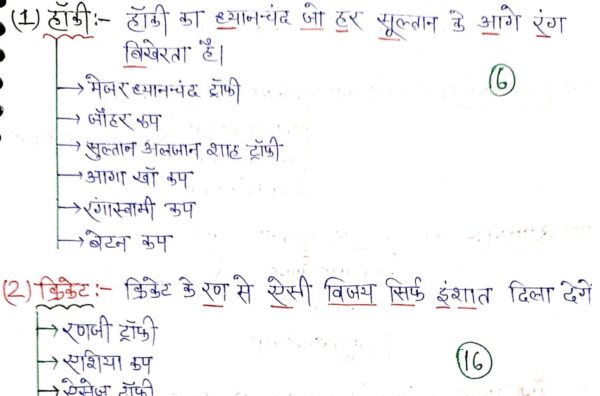 (1) हॉकी:- हॉकी का ध्यानचंद जो हर सुल्तान के आगे रंग
बिखेरता है।
(6)
→ मेजर ध्यानचंद ट्रॉफी
→ जौहर कप
→ सुल्तान अलजान शाह ट्रॉफी
→ आगा खाँ कप
→ रंगास्वामी कप
→ बेटन कप
(2) क्रिकेट:- क्रिकेट के रण से ऐसी विजय सिर्फ इंशात दिला देगें
→ रणजी ट्रॉफी
→ एशिया कप
(16)
→ ऐसेज ट्रॉफी